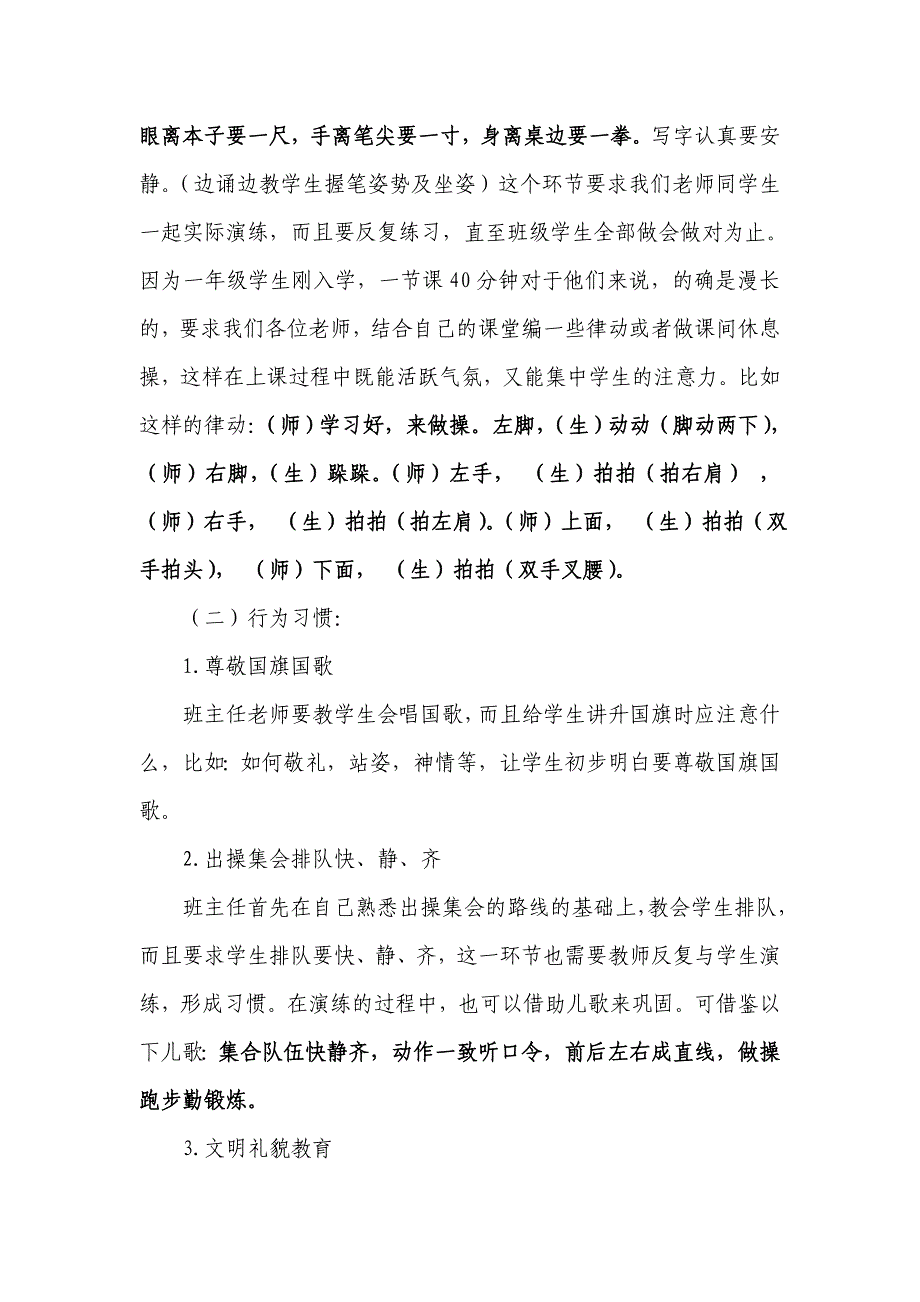 眼离本子要一尺，手离笔尖要一寸，身离桌边要一拳。写字认真要安
静。（边诵边教学生握笔姿势及坐姿）这个环节要求我们老师同学生
一起实际演练，而且要反复练习，直至班级学生全部做会做对为止。
因为一年级学生刚入学，一节课 40 分钟对于他们来说，的确是漫长
的，要求我们各位老师，结合自己的课堂编一些律动或者做课间休息
操，这样在上课过程中既能活跃气氛，又能集中学生的注意力。比如
这样的律动：（师）学习好，来做操。左脚，（生）动动（脚动两下），
（师）右脚，（生）跺跺。（师）左手， （生）拍拍（拍右肩） ，
（师）右手， （生）拍拍（拍左肩）。（师）上面， （生）拍拍（双
手拍头）， （师）下面， （生）拍拍（双手叉腰）。
（二）行为习惯：
1.尊敬国旗国歌
班主任老师要教学生会唱国歌，而且给学生讲升国旗时应注意什
么，比如：如何敬礼，站姿，神情等，让学生初步明白要尊敬国旗国
歌。
2.出操集会排队快、静、齐
班主任首先在自己熟悉出操集会的路线的基础上，教会学生排队，
而且要求学生排队要快、静、齐，这一环节也需要教师反复与学生演
练，形成习惯。在演练的过程中，也可以借助儿歌来巩固。可借鉴以
下儿歌：集合队伍快静齐，动作一致听口令，前后左右成直线，做操
跑步勤锻炼。
3.文明礼貌教育